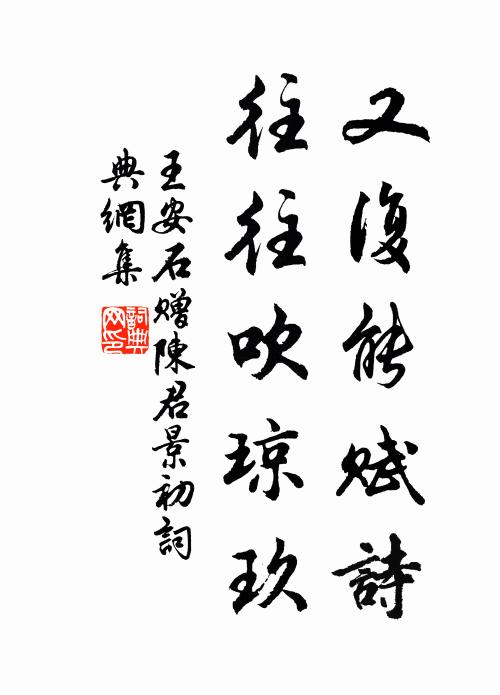 又復能賦詩
往往吹琼玖
王安石赠陳君景初詞
典網集
詞典网印